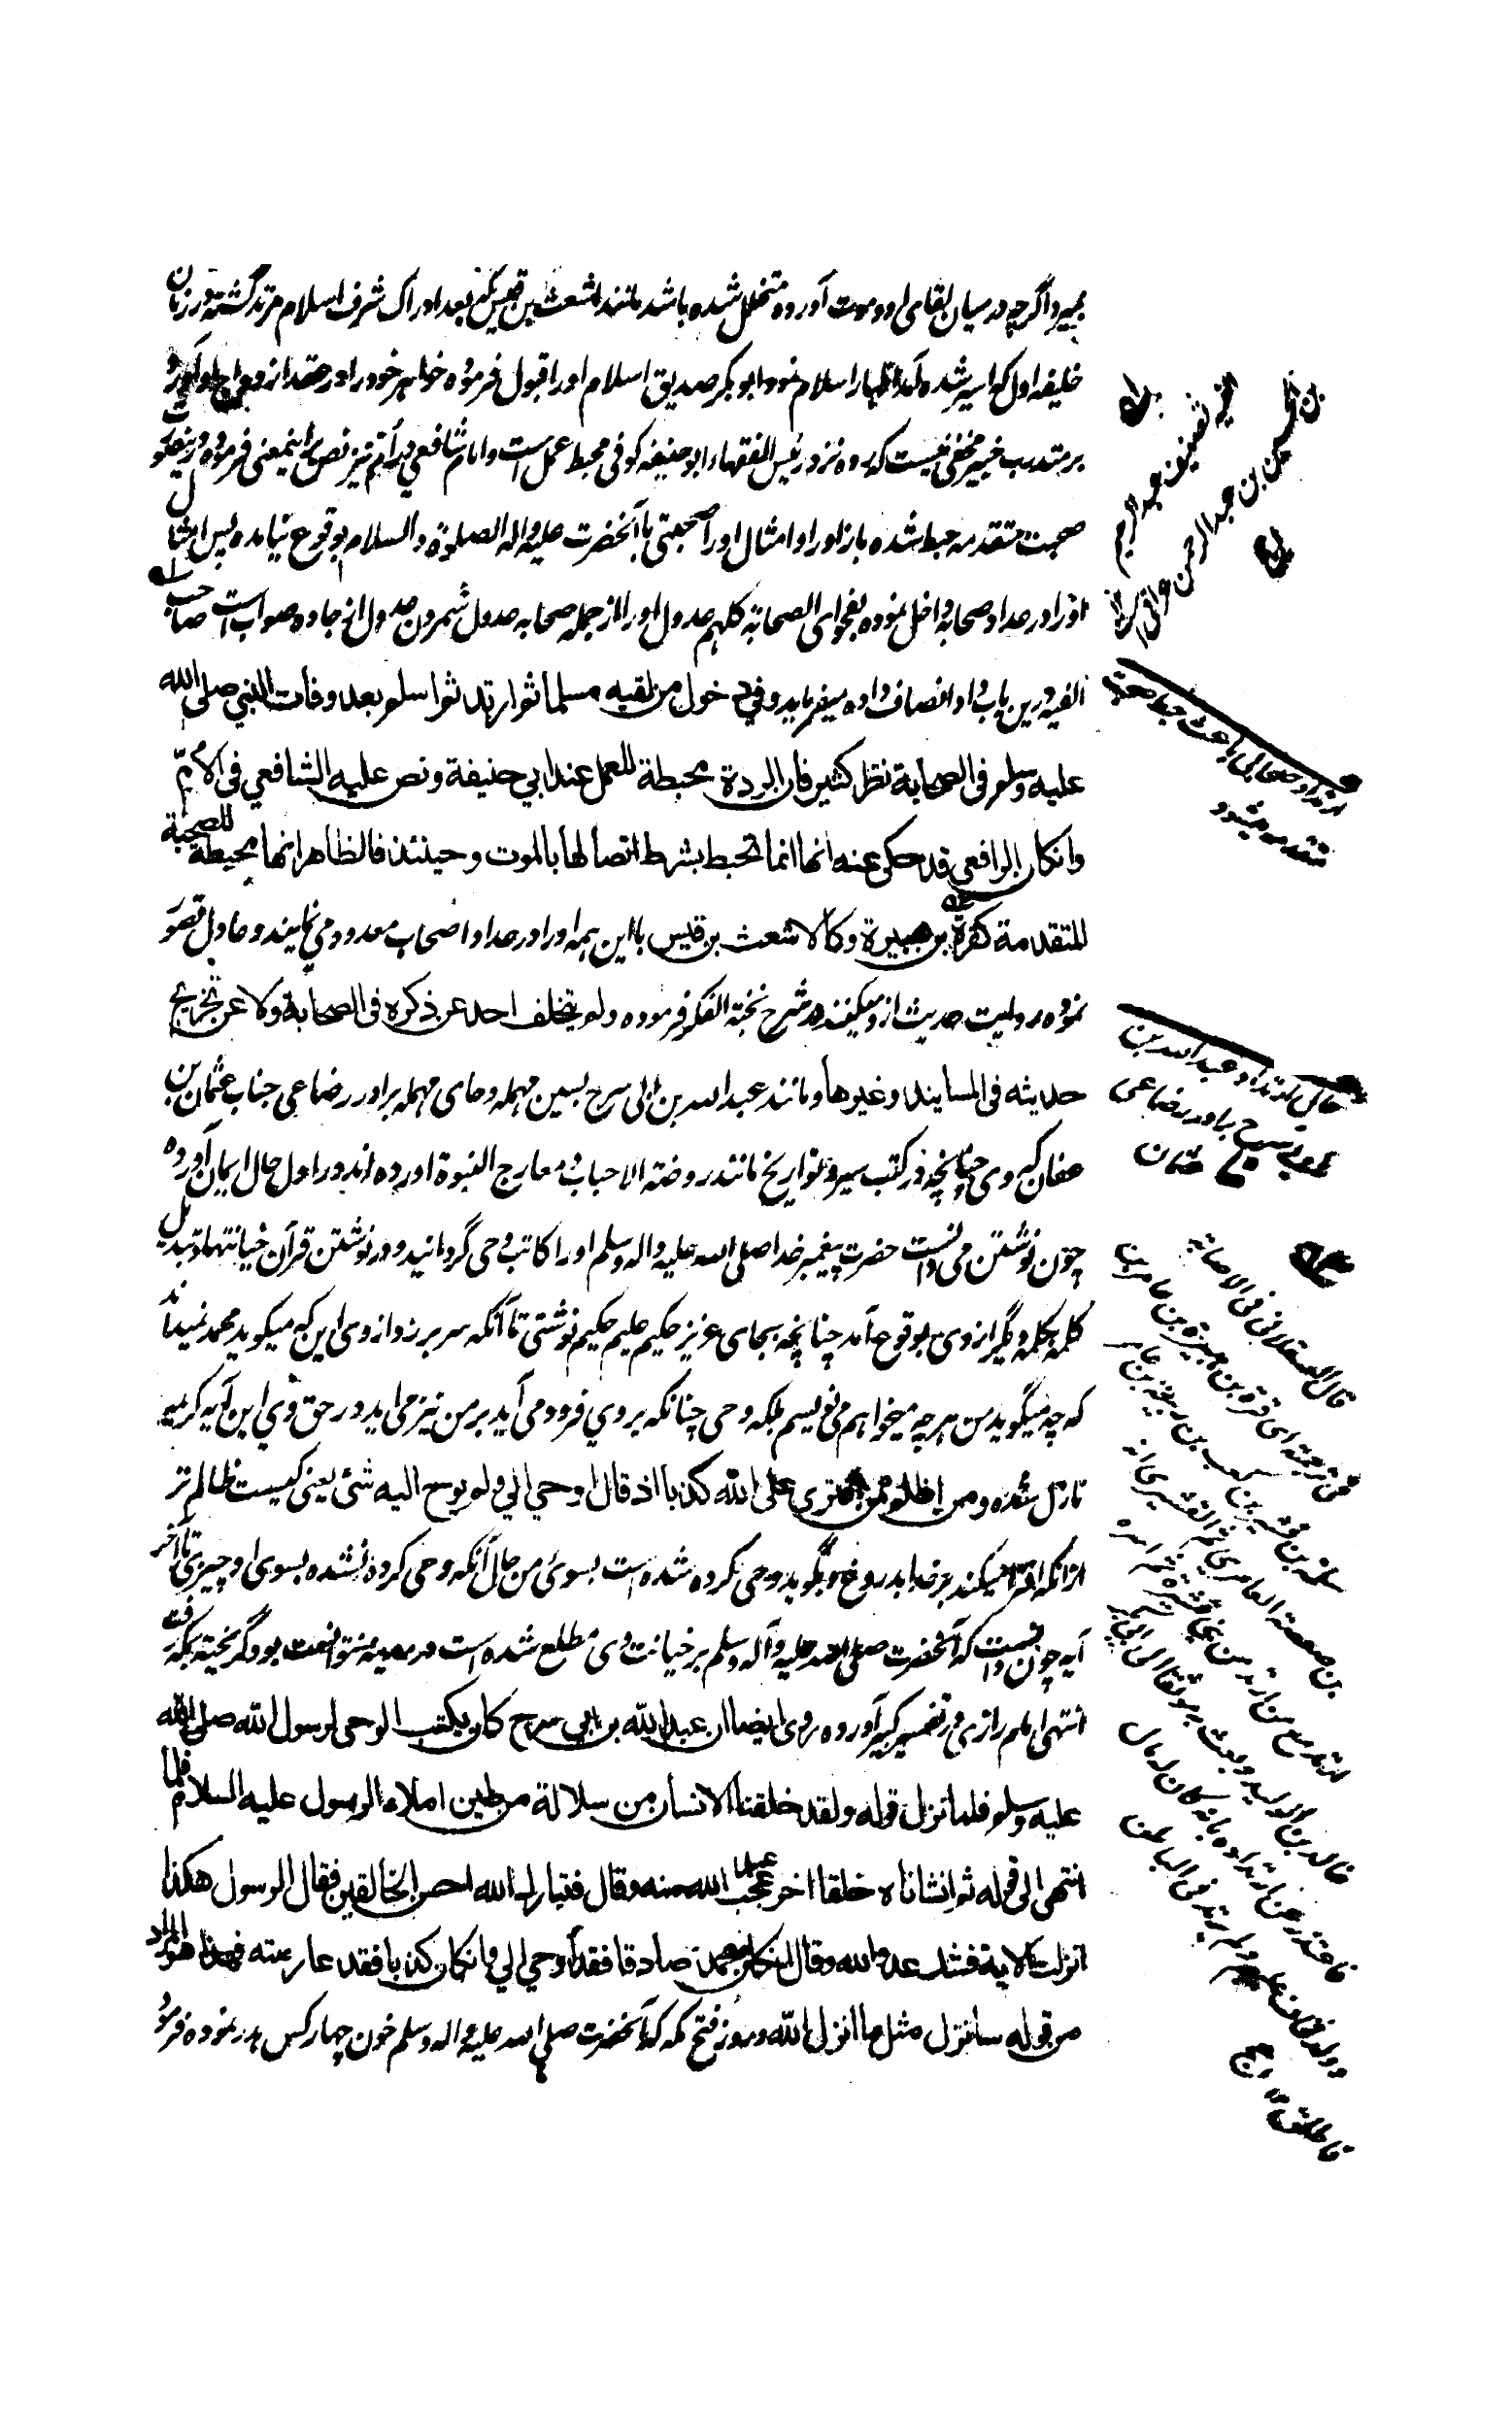 بمیرد اگرچه در میان لقای او و موت آورده متخلل شده باشد مانند اشعث بن قیس که بعد ادراک شرف اسلام مرتد گشته و در زمان
خلیفه اول که اسیر شده آمد اظهار اسلام نمود و ابوبکر صدیق اسلام او را قبول فرموده خواهر خود را در عقد ازدواج او آورد
بر متدرب خبیر مخفی نیست که رده نزد رئیس الفقهاء ابو حنیفه کوفی محبط عمل است و امام شافعی در ام نیز نص براینمعنی فرموده
صحبت متقدمه حبط شده باز او را و امثال او را صحبتی با آنحضرت علیه و اله الصلوة والسلام بوقوع نیامده پس امثال
او را در عداد صحابه داخل نموده بفحوای الصحابة کلهم عدول او را از جمله صحابه عدول شمردن عدول از جاده صواب است صاحب
الفیه درین باب داد انصاف داده میفرماید وفی دخول من لقیه مسلما ثم ارتد ثم اسلم بعد وفات النبي صلى الله
عليه وسلم فى الصحابة نظر كثير فان الردة محبطة للعمل عند ابي حنيفة ونص عليه الشافعي فى الأم
وانكان الرافعي قد حكى عنه انها انما تحبط بشرط اتصالها بالموت وحينئذ فالظاهر انها محبطة للصحبة
المتقدمة كقرة بن هبيرة وكالاشعث بن قيس با این همه او را در عداد اصحاب معدود می نمایند و عادل تصور
نموده روایت حدیث از و میکنند در شرح نخبة الفکر فرموده ولم يتخلف احد عن ذكره فى الصحابة ولا عن تخريج
حديثه فى المسانيد وغيرها و مانند عبد الله بن ابی سرح بسین مهمله و حای مهمله برادر رضاعی جناب عثمان بن
عفان که وی چنانچه در کتب سیر و تواریخ مانند روضة الاحباب و معارج النبوة آورده اند در اول حال ایمان آورده
چون نوشتن می دانست حضرت پیغمبر خدا صلی الله علیه واله وسلم او را کاتب وحی گردانید و در نوشتن قرآن خیانتها و تبدیل
کلمه بکلمه دیگر از وی بوقوع آمد چنانچه بجای عزیز حکیم علیم حکیم نوشتی تا آنکه سر برزد از وی این که میگوید محمد نمیداند
که چه میگوید من هر چه میخواهم می نویسم بلکه وحی چنانکه بروی فرود می آید بر من نیز می آید در حق وی این آیه کریمه
نازل شده ومن اظلم ممن افترى على الله كذبا او قال اوحي الي ولم يوح اليه شئ یعنی کیست ظالم تر
ازانکه افترا میکند بر خدا بدروغ و بگوید وحی کرده شده است بسوی من حال آنکه وحی کرده نشده بسوی او چیزی تا آخر
آیه چون دانست که آنحضرت صلی الله علیه وآله وسلم بر خیانت وی مطلع شده است در مدینه نتوانست بود گریخته بمکه رفت
انتهى امام رازی در تفسیر کبیر آورده روى ايضا ان عبد الله بن ابي سرح كان يكتب الوحى لرسول الله صلى الله
عليه وسلم فلما نزل قوله ولقد خلقنا الانسان من سلالة من طين املاه الرسول عليه السلام فلما
انتهى الى قوله ثم انشاناه خلقا اخر عجب عبد الله منه وقال فتبارك الله احسن الخالقين فقال الرسول هكذا
انزلت الاية فشك عبد الله وقال انكان محمد صادقا فقد أوحي الي وانكان كذبا فقد عارضته فهذا هو المراد
من قوله سانزل مثل ما انزل الله و روز فتح مکه که آنحضرت صلی الله علیه واله وسلم خون چهار کس هدر نموده فرمود
بن الحسین بن عبد الرحمن
ارتداد صحابی باعث حبط صحبت
متقدمه میشود
ارتداد عبد الله بن
سرح برادر رضاعی
عثمان
قال العسقلانی فی الاصابه
فی ترجمته ای قرة بن هبیرة بن عامر بن
سلمة بن قشیر بن کعب بن ربیعة بن عامر
بن صعصعة العامری ثم القشیری انه
ارتد مع من ارتد من بنی قشیر ثم اسره
خالد بن الولید و بعث به الی ابی بکر
فاعتذر عن ارتداده بانه کان له مال
فاطلقه